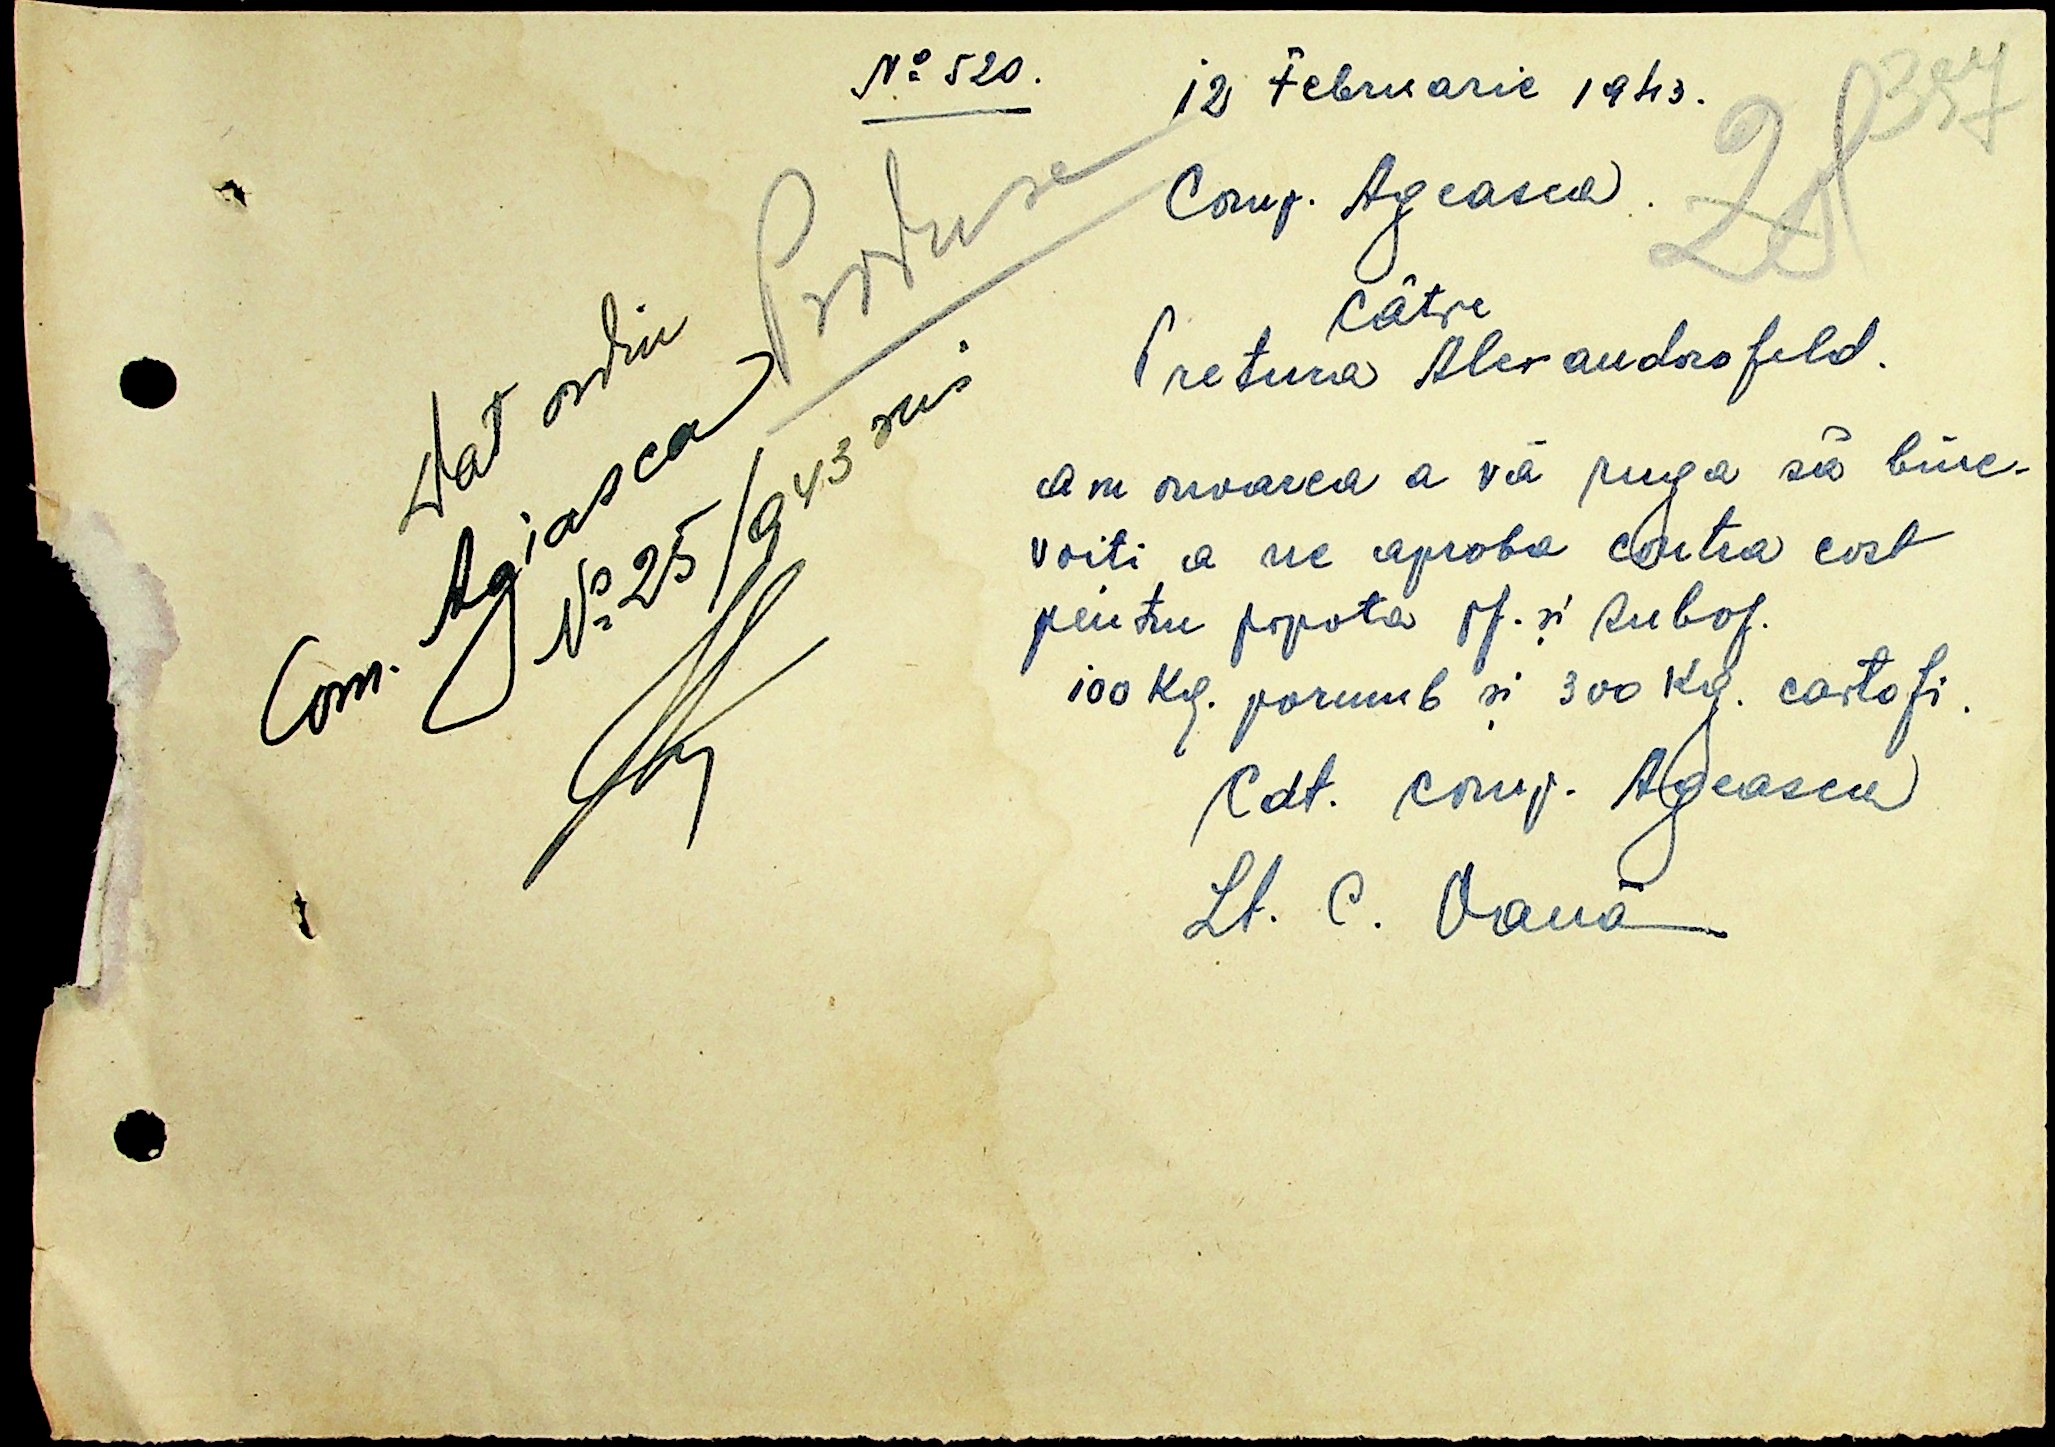 No 520.
12 Februarie 1943.
Comp. Ageasca.
Către
Pretura Alexandrofeld.
Am onoarea a vă ruga să bine-
voiti a ne aproba contra cost
pentru popota of. și subof.
100 Kg. porumb și 300 Kg. cartofi.
Cdt. Comp. Ageasca
Lt. C. Oană
Produse
Dat ordin
Com. Agiasca
No 25/943 rus
28